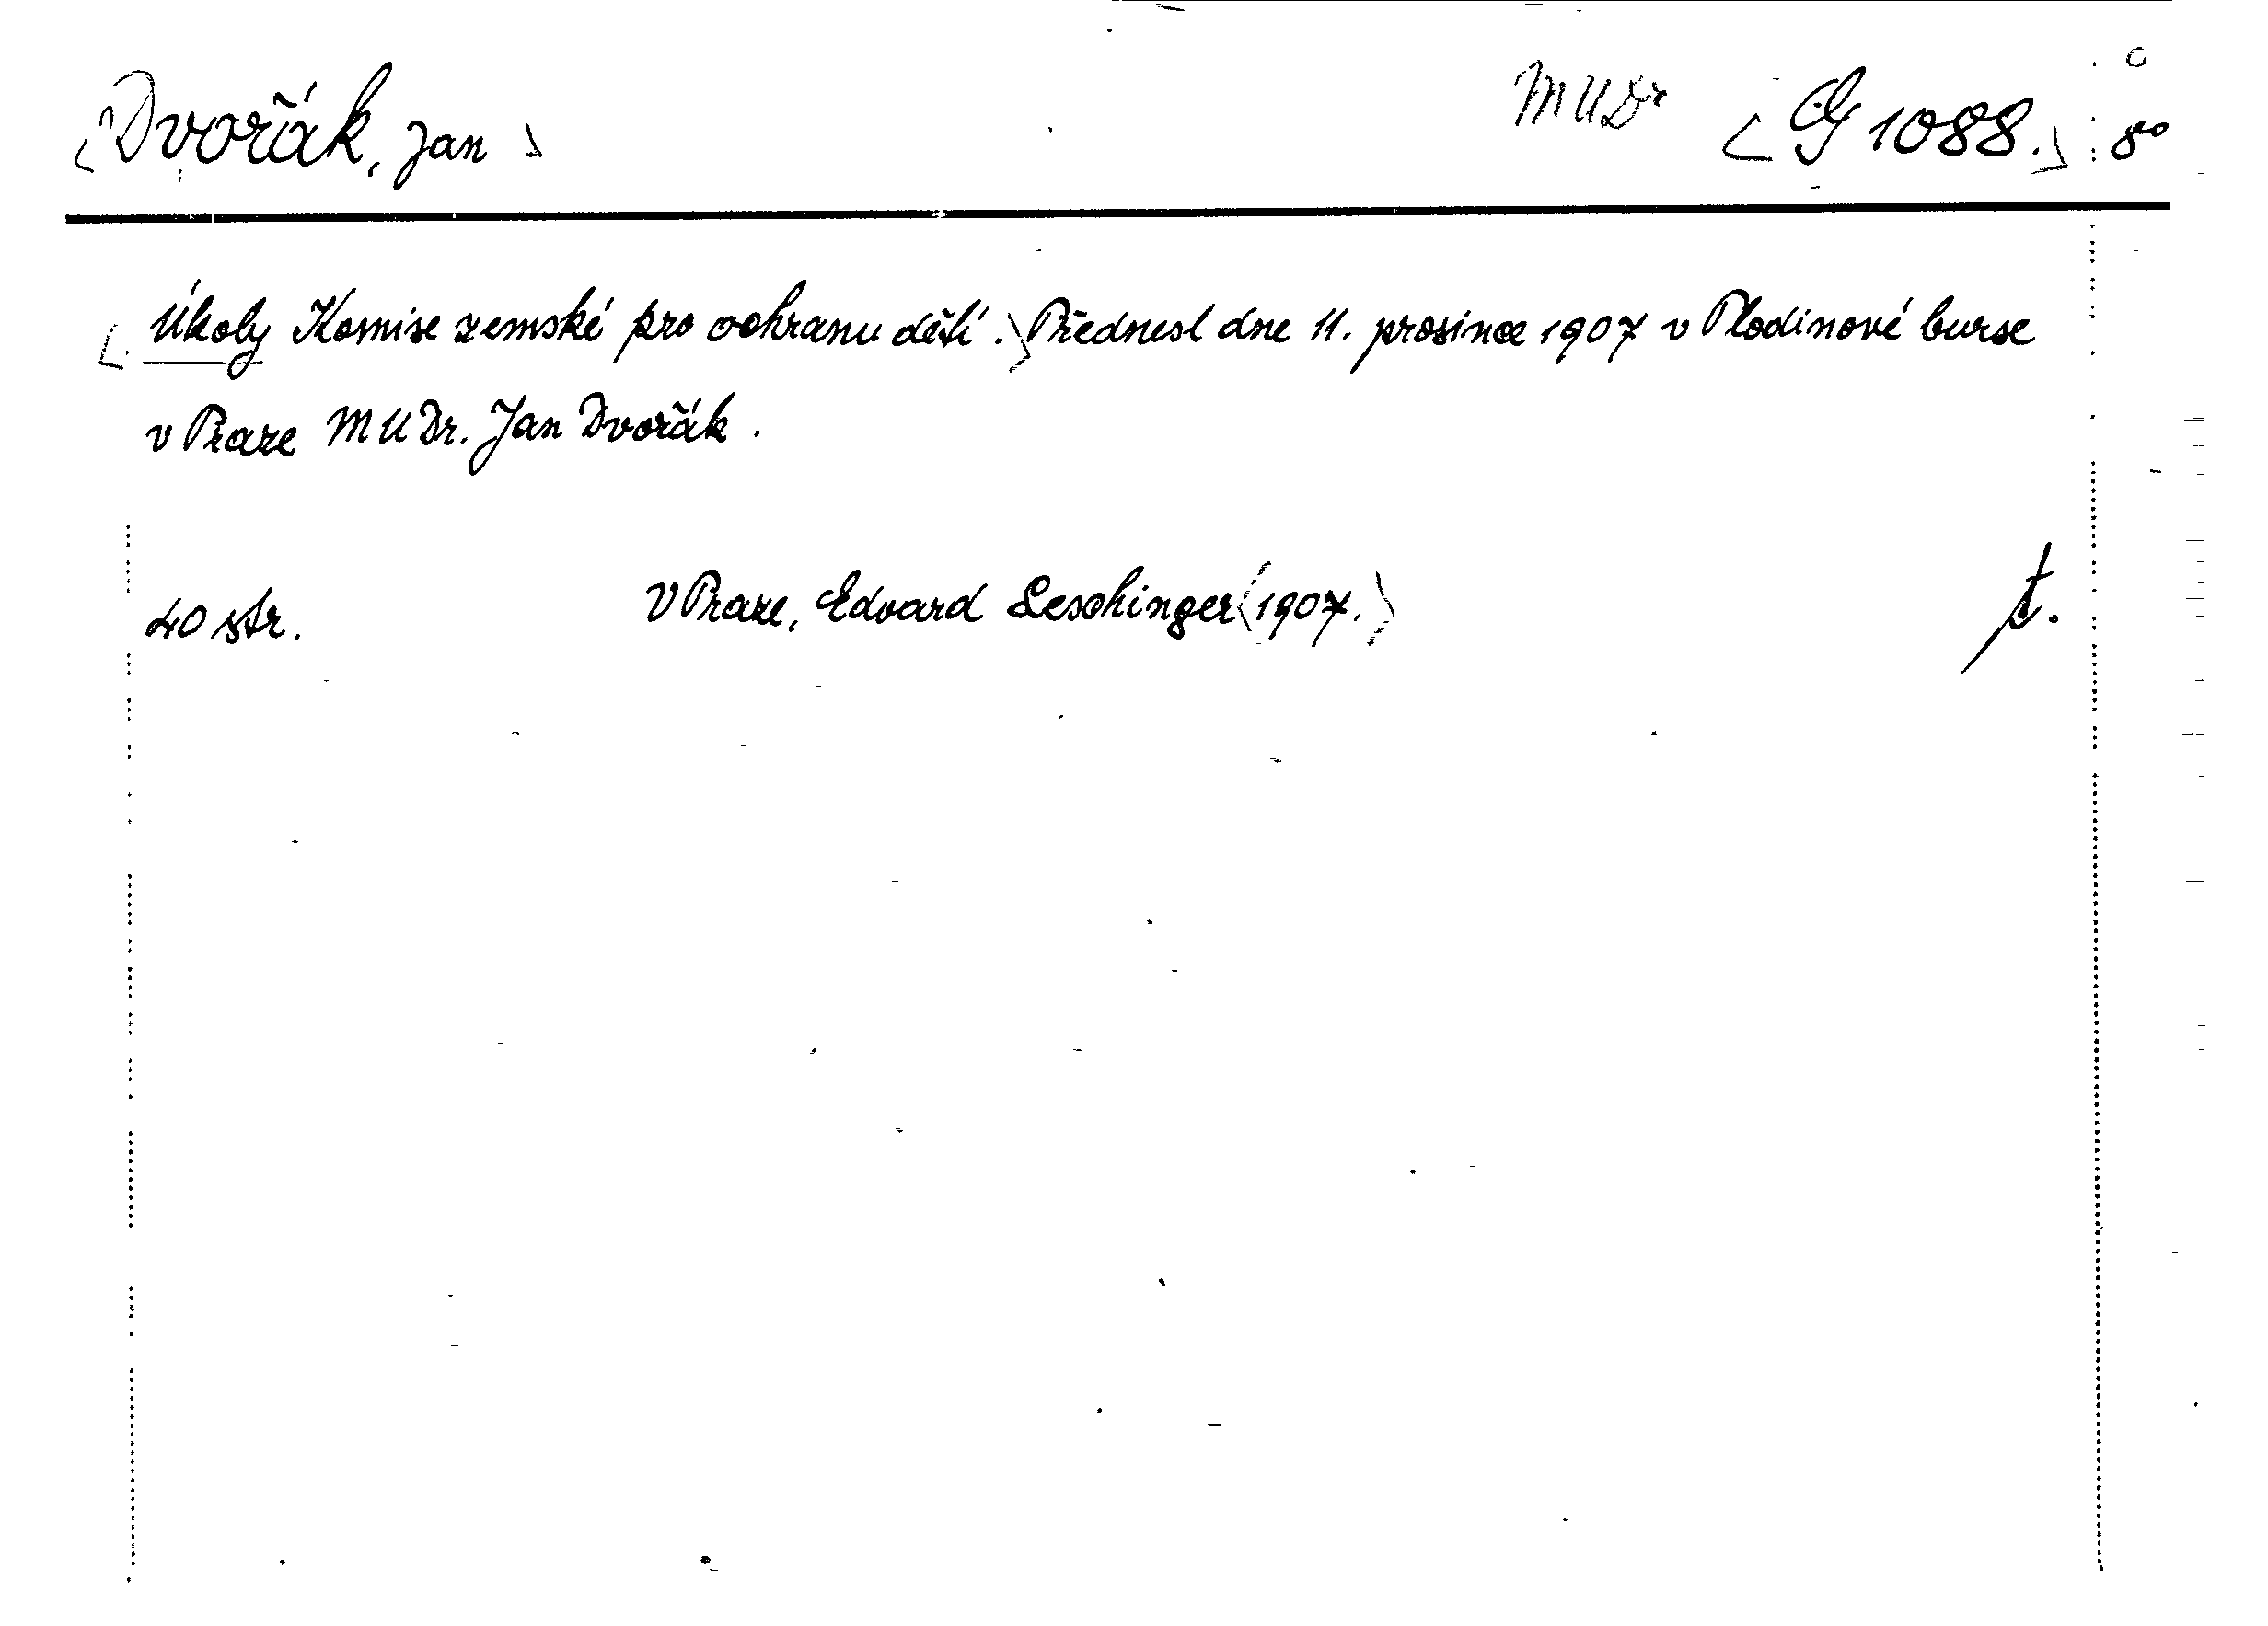 Dvořák, Jan MUDr G 1088. 8°
Úkoly Komise zemské pro ochranu dětí. Přednesl dne 11. prosince 1907 v Plodinové burse
v Praze MUDr. Jan Dvořák.
40 str. V Praze, Edvard Leschinger (1907.) t.